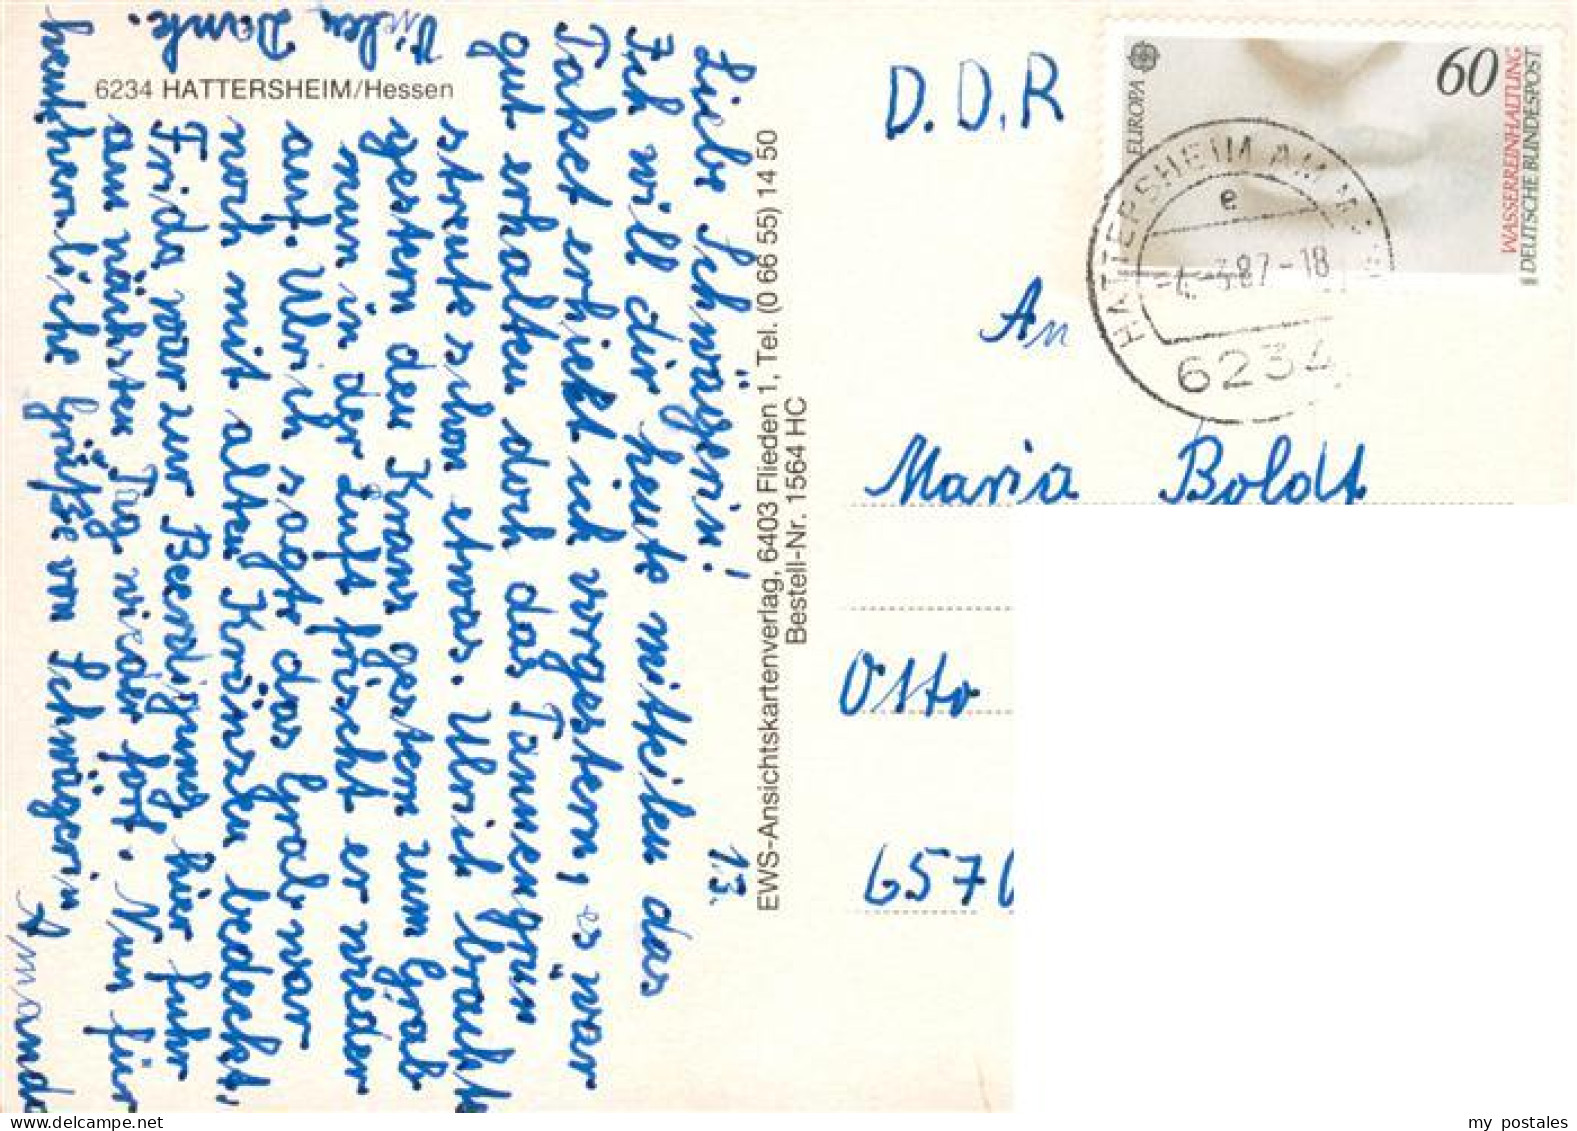 6234 HATTERSHEIM/Hessen
1.3.
Liebe Schwägerin!
Ich will dir heute mitteilen das
Paket erhielt ich vorgestern, es war
gut erhalten doch das Tannengrün
streute schon etwas. Ulrich brachte
gestern den Kranz gestern zum Grab
nun in der Luft frischt er wieder
auf. Ulrich sagte das Grab war
noch mit alten Kränzen bedeckt,
Frida war zur Beerdigung hier fuhr
am nächsten Tag wieder fort. Nun für
heute herzliche Grüße von Schwägerin
Amanda
Vielen Dank.
EWS-Ansichtskartenverlag, 6403 Flieden 1, Tel. (0 66 55) 14 50
Bestell-Nr. 1564 HC
D.D.R
EUROPA
60
WASSERREINHALTUNG
DEUTSCHE BUNDESPOST
HATTERSHEIM AM
e
-4.-3.87-18
6234
An
Maria Boldt
Otto
657
my postales